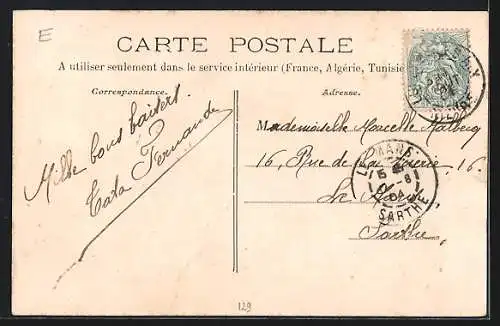 E
CARTE POSTALE
A utiliser seulement dans le service intérieur (France, Algérie, Tunisie
Correspondance.
Adresse.
Mille bons baisers.
Tata Fernande
Mademoiselle Marcelle
16, Rue de La 16.
Le Mans
Sarthe
LE MANS
SARTHE
129